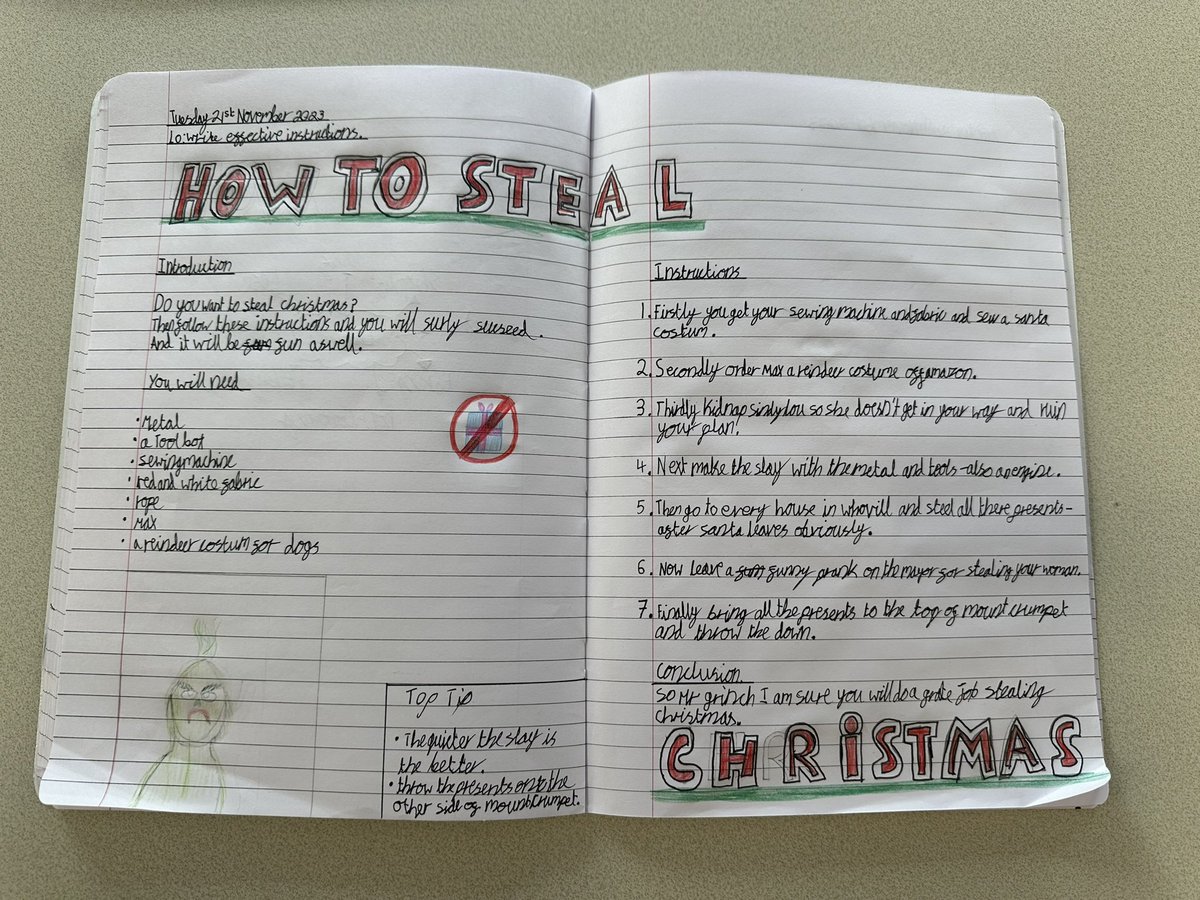 Tuesday 21st November 2023
Lo: Write effective instructions.
HOW TO STEAL
Introduction
Do you want to steal christmas?
Then follow these instructions and you will surly sueseed.
And it will be fun aswell.
You will need
• Metal
• a Tool bot
• sewing machine
• red and white fabric
• rope
• Max
• a reindeer costum for dogs
Top Tip
• The quieter the slay is
the better.
• throw the presents onto the
other side of mount crumpet.
Instructions
1. Firstly you get your sewing machine and fabric and sew a santa
costum.
2. Secondly order Max a reindeer costume off amazon.
3. Thirdly kidnap sindy lou so she doesn't get in your way and ruin
your plan!
4. Next make the slay with the metal and tools - also an engine.
5. Then go to every house in whovill and steel all there presents -
after santa leaves obviously.
6. Now leave a funny prank on the mayor for stealing your woman.
7. Finally bring all the presents to the top of mount crumpet
and throw the down.
Conclusion
So Mr grinch I am sure you will do a grate job stealing
christmas.
CHRISTMAS